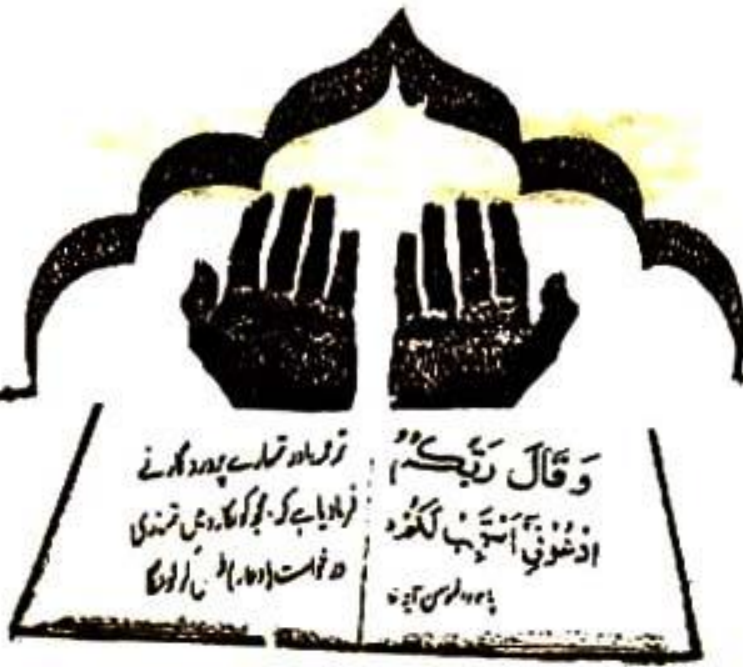 وَقَالَ رَبُّكُمُ
ادْعُوْنِیْۤ اَسْتَجِبْ لَكُمْ
ترجمہ اور تمہارے پروردگار نے
فرمادیا ہے کہ مجھ کو پکارو میں تمہاری
درخواست (دعاء) قبول کرلونگا